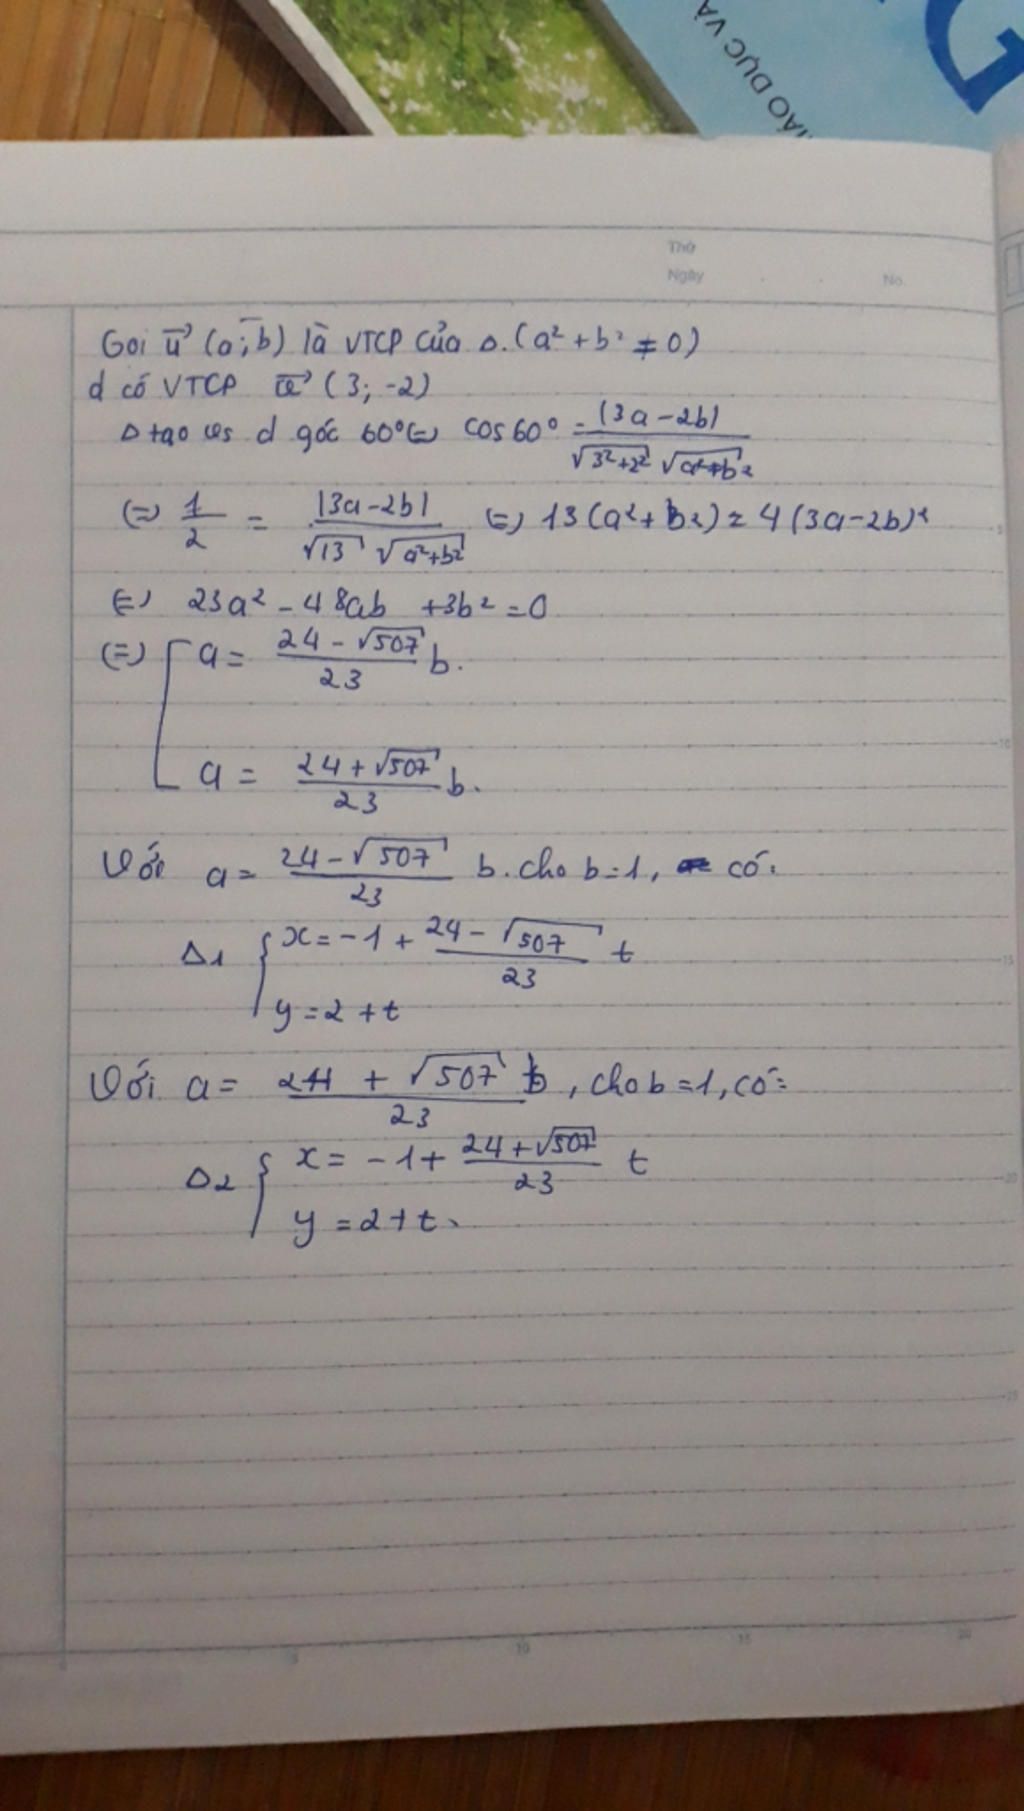 ÁO DỤC VÀ
G
Thứ
Ngày No.
Gọi u⃗ (a; b) là VTCP của Δ. (a² + b² ≠ 0)
d có VTCP u⃗ (3; -2)
Δ tạo với d góc 60° (=) cos60° = |3a - 2b| / √3²+2² √a²+b²
(=) 1/2 = |3a-2b| / √13 √a²+b² (=) 13(a²+b²) = 4(3a-2b)²
(=) 23a² - 48ab + 3b² = 0
(=) [ a = 24 - √507 / 23 b.
a = 24 + √507 / 23 b.
Với a = 24 - √507 / 23 b. cho b = 1, có:
Δ1 { x = -1 + 24 - √507 / 23 t
y = 2 + t
Với a = 24 + √507 / 23 b, cho b = 1, có:
Δ2 { x = -1 + 24 + √507 / 23 t
y = 2 + t.
5
10
15
20
25
5 10 15 20